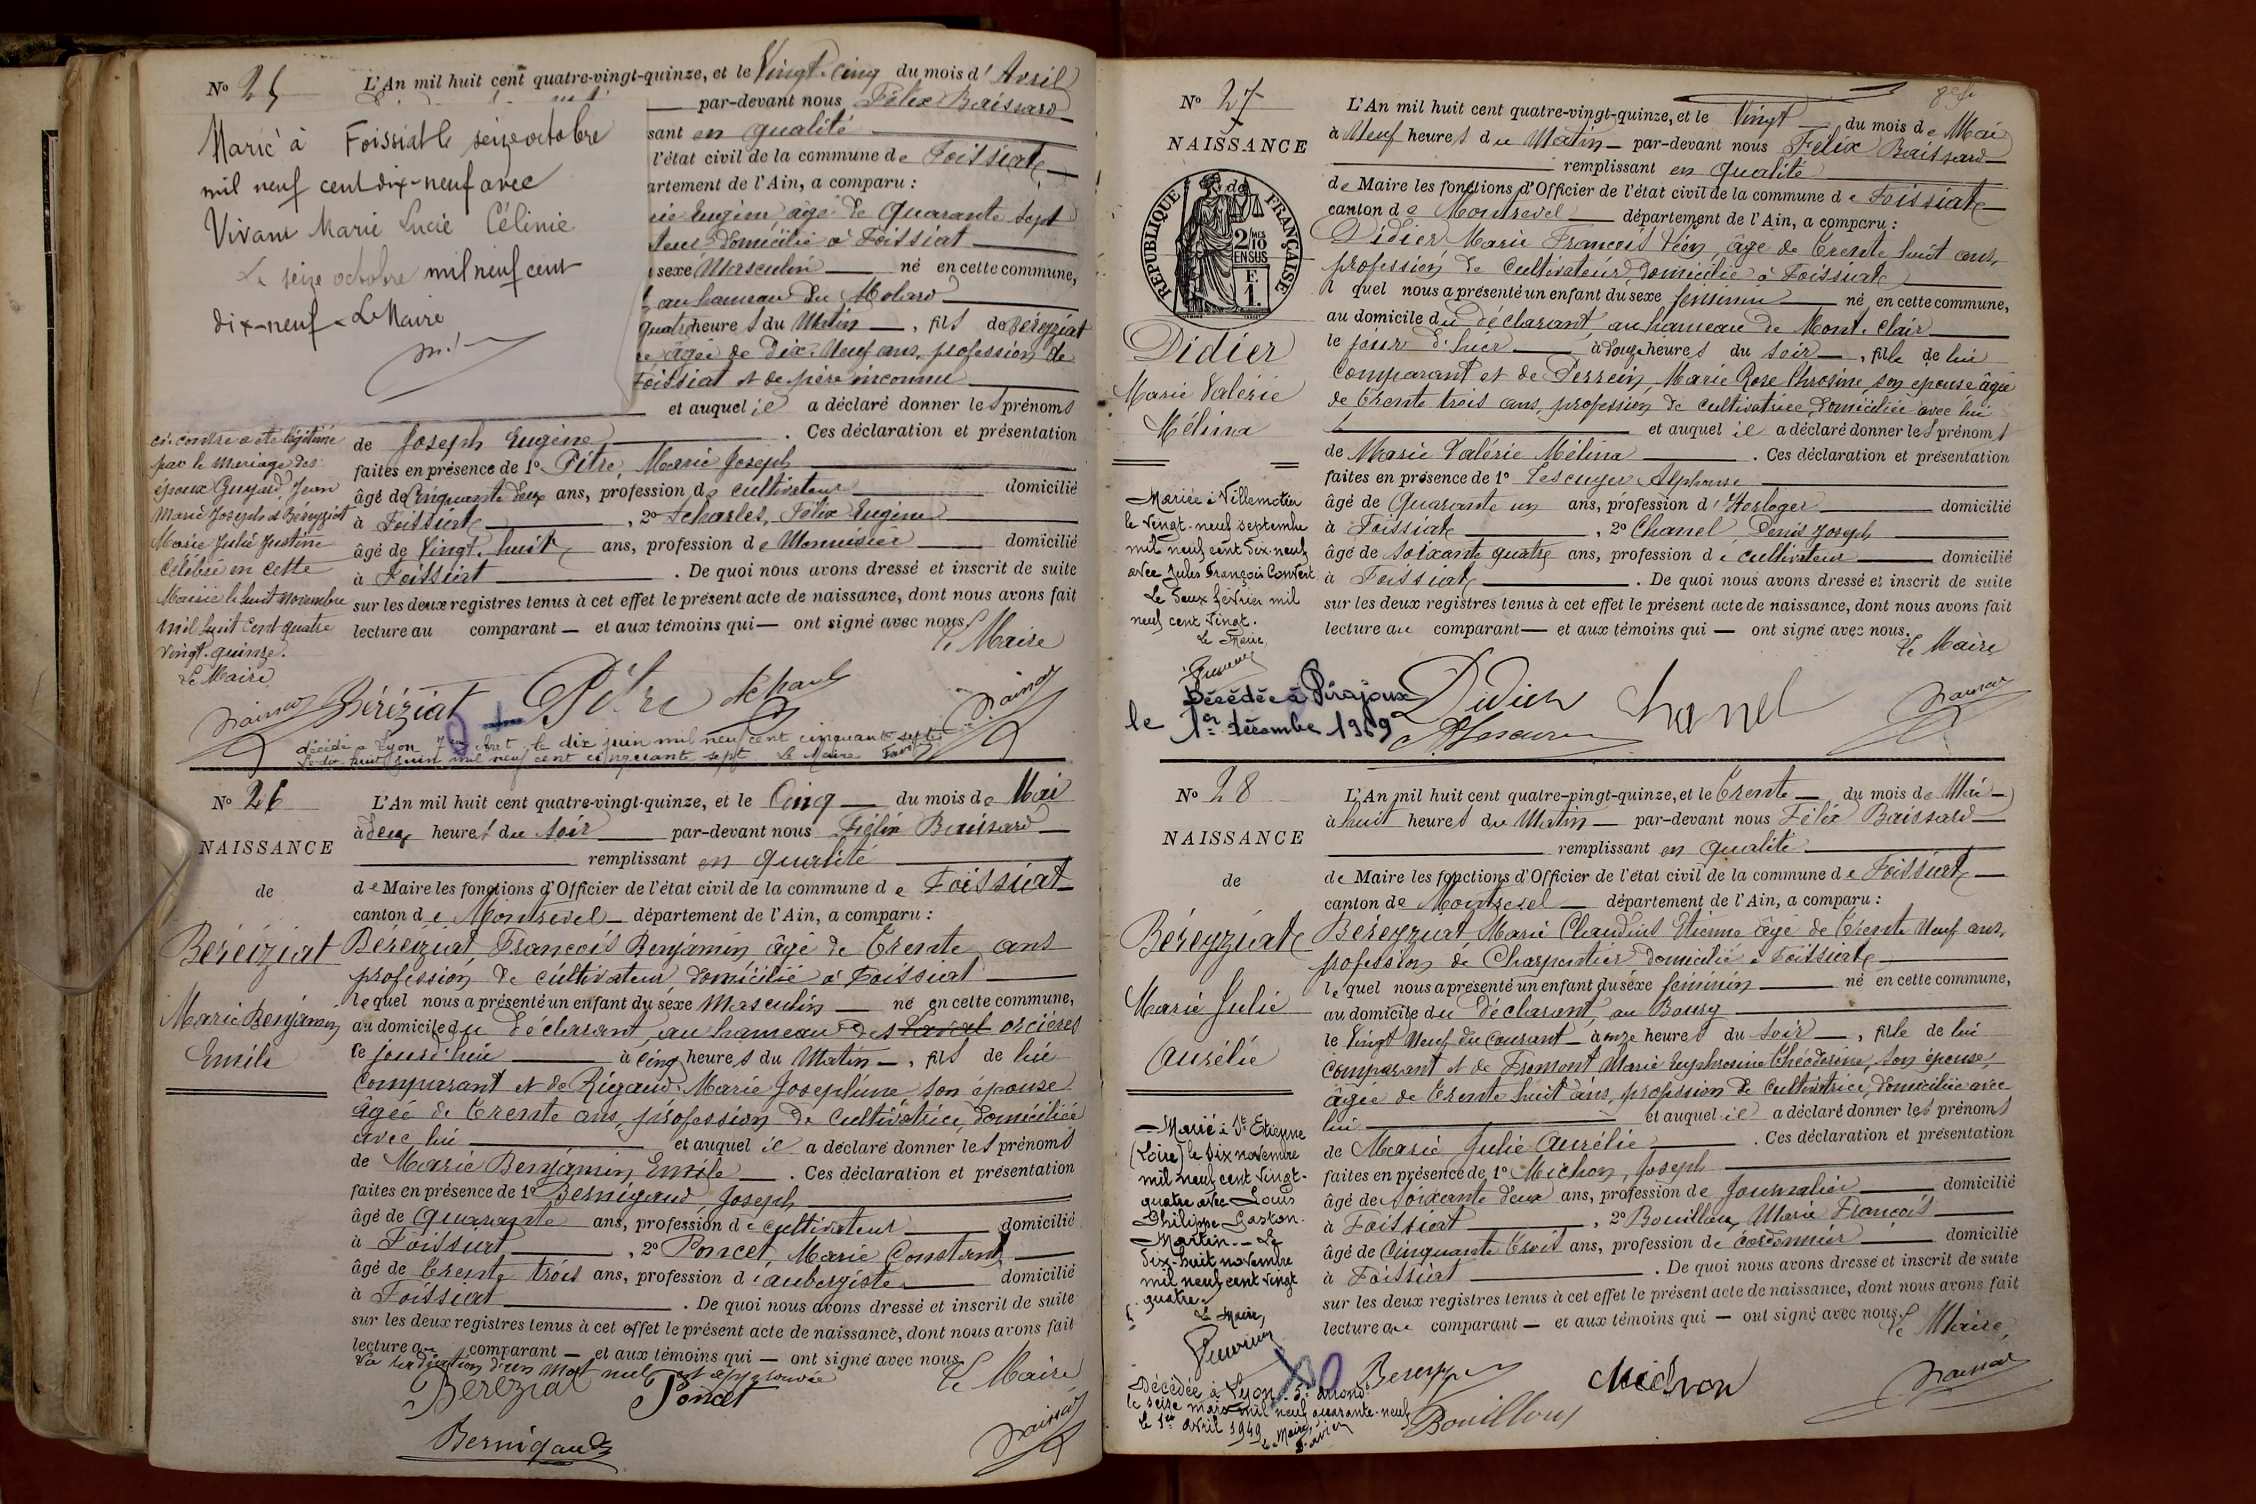 No 25
L'An mil huit cent quatre-vingt-quinze, et le Vingt-cinq du mois d' Avril
par-devant nous Félix Baissard
sant en qualité
l'état civil de la commune de Foissiat
artement de l'Ain, a comparu :
Eugène âgé de quarante sept
domicilié à Foissiat
sexe Masculin né en cette commune,
au hameau du Molard
quatre heures du Matin, fils de Béreyziat
âgée de Dix-Neuf ans, profession de
Foissiat et de père inconnu
et auquel il a déclaré donner les prénoms
Marié à Foissiat le seize octobre
mil neuf cent dix-neuf avec
Vivant Marie Lucie Célinie
Le seize octobre mil neuf cent
dix-neuf. Le Maire
de Joseph Eugène. Ces déclaration et présentation
faites en présence de 1o Pitre, Marie Joseph
âgé de Cinquante deux ans, profession de cultivateur domicilié
à Foissiat, 2o Felix Eugène
âgé de Vingt-huit ans, profession de Menuisier domicilié
à Foissiat. De quoi nous avons dressé et inscrit de suite
sur les deux registres tenus à cet effet le présent acte de naissance, dont nous avons fait
lecture au comparant et aux témoins qui ont signé avec nous.
Le Maire
ci-contre a été légitimé
par le mariage des
époux Guyard, Jean
Marie Joseph et Béreyziat
Marie Julie Justine
célébré en cette
Mairie le huit novembre
mil huit cent quatre
vingt-quinze.
Le Maire
Béréziat Pitre
décédé à Lyon 7me Arrt le dix juin mil neuf cent cinquante sept
Le dix huit juin mil neuf cent cinquante sept Le Maire
No 26
NAISSANCE
de
Béréiziat
Marie Benjamin
Emile
L'An mil huit cent quatre-vingt-quinze, et le Cinq du mois de Mai
à deux heures du soir par-devant nous Félix Baissard
remplissant en qualité
de Maire les fonctions d'Officier de l'état civil de la commune de Foissiat
canton de Montrevel département de l'Ain, a comparu :
Béréiziat, François Benjamin, âgé de Trente ans
profession de cultivateur, domicilié à Foissiat
lequel nous a présenté un enfant du sexe Masculin né en cette commune,
au domicile du déclarant, au hameau des orcières
le jourd'hui à cinq heures du Matin, fils de lui
comparant et de Rigaud Marie Joséphine son épouse
âgée de Trente ans, profession de cultivatrice, domiciliée
avec lui et auquel il a déclaré donner les prénoms
de Marie Benjamin Emile. Ces déclaration et présentation
faites en présence de 1o Bernigaud, Joseph
âgé de Quarante ans, profession de cultivateur domicilié
à Foissiat, 2o Poncet, Marie Constant
âgé de Trente trois ans, profession d'aubergiste domicilié
à Foissiat. De quoi nous avons dressé et inscrit de suite
sur les deux registres tenus à cet effet le présent acte de naissance, dont nous avons fait
lecture au comparant et aux témoins qui ont signé avec nous
La radiation d'un mot nul est approuvée
Le Maire
Béréziat Poncet
Bernigaud
No 27
NAISSANCE
de
RÉPUBLIQUE FRANÇAISE
2/10 EN SUS
Didier
Marie Valérie
Mélina
L'An mil huit cent quatre-vingt-quinze, et le Vingt du mois de Mai
à Neuf heures du Matin par-devant nous Felix Baissard
remplissant en qualité
de Maire les fonctions d'Officier de l'état civil de la commune de Foissiat
canton de Montrevel département de l'Ain, a comparu :
Didier Marie François Léon, âgé de Trente huit ans,
profession de cultivateur, domicilié à Foissiat
lequel nous a présenté un enfant du sexe féminin né en cette commune,
au domicile du déclarant, au hameau de Mont-Clair
le jour d'hier à douze heures du soir, fille de lui
comparant et de Perrein, Marie Rose son épouse âgée
de Trente trois ans, profession de cultivatrice, domiciliée avec lui
et auquel il a déclaré donner les prénoms
de Marie Valérie Mélina. Ces déclaration et présentation
faites en présence de 1o Lescuyer Alphonse
âgé de Quarante un ans, profession d'Horloger domicilié
à Foissiat, 2o Chanel Denis Joseph
âgé de soixante quatre ans, profession de cultivateur domicilié
à Foissiat. De quoi nous avons dressé et inscrit de suite
sur les deux registres tenus à cet effet le présent acte de naissance, dont nous avons fait
lecture au comparant et aux témoins qui ont signé avec nous.
Le Maire
Mariée à Villemotier
le vingt-neuf septembre
mil neuf cent dix-neuf
avec Jules François Convert
Le deux février mil
neuf cent vingt.
Le Maire
Décédée à Pirajoux
le 1er décembre 1969
Didier Chanel
No 28
NAISSANCE
de
Béreyziat
Marie Julie
Aurélie
L'An mil huit cent quatre-vingt-quinze, et le Trente du mois de Mai
à huit heures du Matin par-devant nous Félix Baissard
remplissant en qualité
de Maire les fonctions d'Officier de l'état civil de la commune de Foissiat
canton de Montrevel département de l'Ain, a comparu :
Béreyziat Marie Claudius Etienne âgé de Trente Neuf ans,
profession de Charpentier domicilié à Foissiat
lequel nous a présenté un enfant du sexe féminin né en cette commune,
au domicile du déclarant, au Bourg
le Vingt Neuf du courant à onze heures du soir, fille de lui
comparant et de Fromont Marie Euphrosine Théodorine, son épouse,
âgée de Trente huit ans, profession de cultivatrice, domiciliée avec
lui et auquel il a déclaré donner les prénoms
de Marie Julie Aurélie. Ces déclaration et présentation
faites en présence de 1o Michon, Joseph
âgé de soixante deux ans, profession de Journalier domicilié
à Foissiat, 2o Bouilloux Marie François
âgé de Cinquante trois ans, profession de cordonnier domicilié
à Foissiat. De quoi nous avons dressé et inscrit de suite
sur les deux registres tenus à cet effet le présent acte de naissance, dont nous avons fait
lecture au comparant et aux témoins qui ont signé avec nous.
Le Maire,
Marié à St Etienne
(Loire) le dix novembre
mil neuf cent vingt-
quatre avec Louis
Philippe Gaston
Martin. Le
dix-huit novembre
mil neuf cent vingt
quatre.
Le Maire,
Décédée à Lyon 5e arrond
le seize mars mil neuf quarante-neuf
le 1er avril 1949 Le Maire,
Michon
Bouilloux